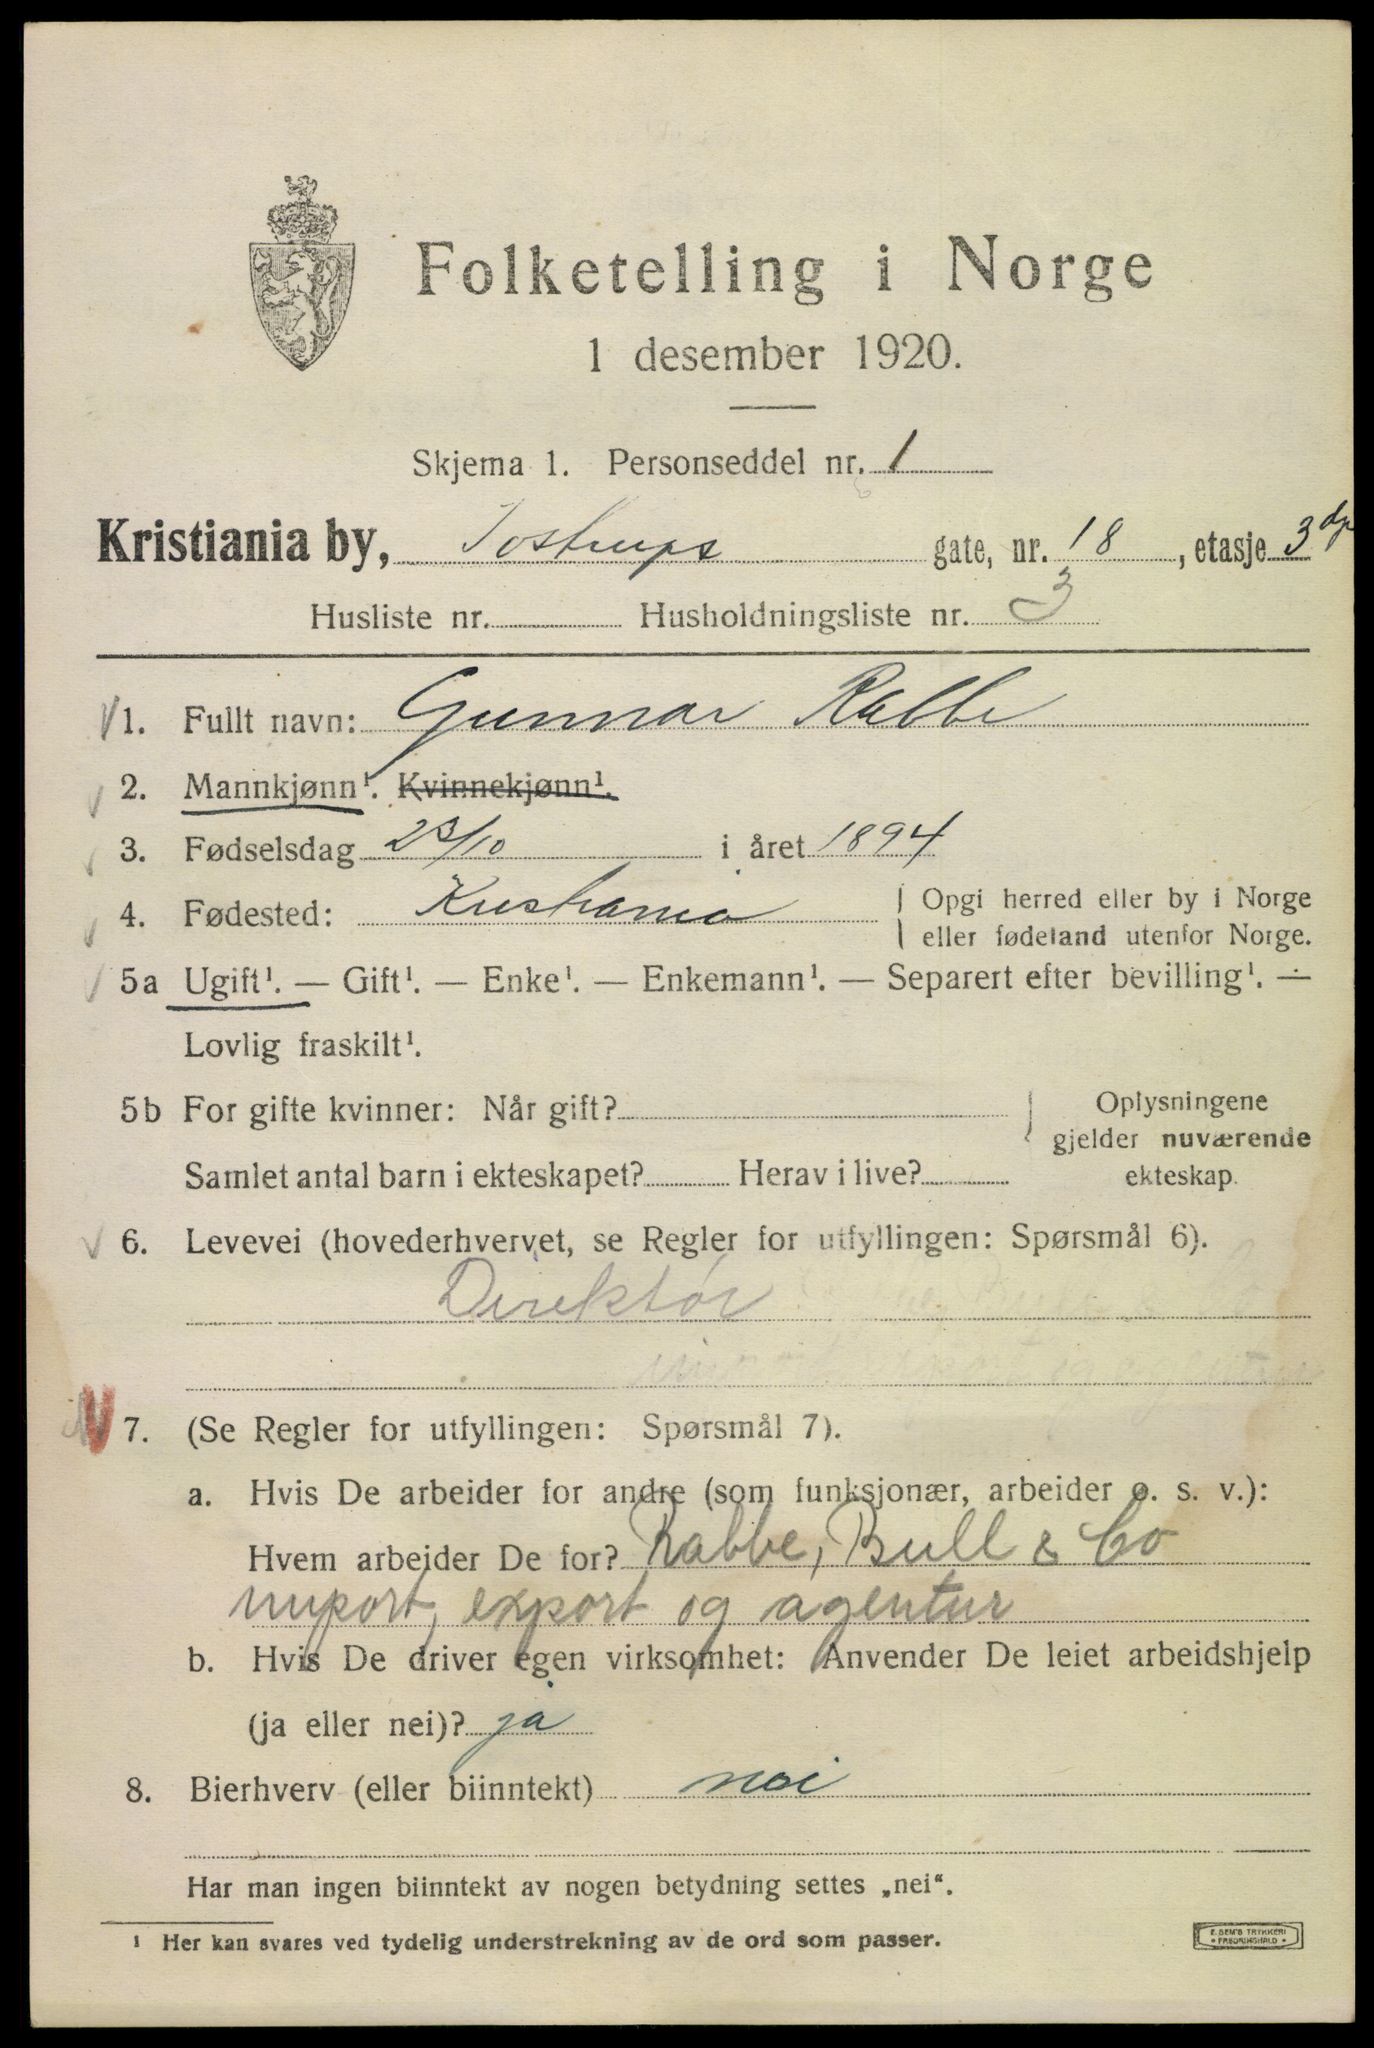 Folketelling i Norge
1 desember 1920.
Skjema 1. Personseddel nr. 1
Kristiania by, Tostrups gate, nr. 18, etasje 3
Husliste nr. Husholdningsliste nr. 3
1. Fullt navn: Gunnar Rabbe
2. Mannkjønn¹. Kvinnekjønn¹.
3. Fødselsdag 23/10 i året 1894
4. Fødested: Kristiania
Opgi herred eller by i Norge
eller fødeland utenfor Norge.
5a Ugift¹. — Gift¹. — Enke¹. — Enkemann¹. — Separert efter bevilling¹. —
Lovlig fraskilt¹.
5b For gifte kvinner: Når gift?
Samlet antal barn i ekteskapet? Herav i live?
Oplysningene
gjelder nuværende
ekteskap.
6. Levevei (hovederhvervet, se Regler for utfyllingen: Spørsmål 6).
Direktør
7. (Se Regler for utfyllingen: Spørsmål 7).
a. Hvis De arbeider for andre (som funksjonær, arbeider o. s. v.):
Hvem arbeider De for? Rabbe, Bull & Co
import, export og agentur
b. Hvis De driver egen virksomhet: Anvender De leiet arbeidshjelp
(ja eller nei)? ja
8. Bierhverv (eller biinntekt) nei
Har man ingen biinntekt av nogen betydning settes „nei“.
¹ Her kan svares ved tydelig understrekning av de ord som passer.
E. SEM'S TRYKKERI
FREDRIKSHALD